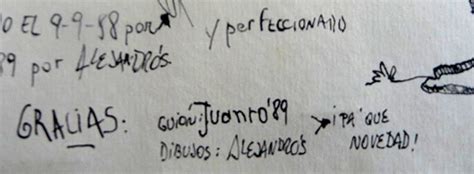 O EL 9-9-88 por
y perfeccionado
89 por Alejandro's
GRACIAS: guión: Juanro'89 ¡PA' QUE
DIBUJOS: ALEJANDRO'S NOVEDAD!